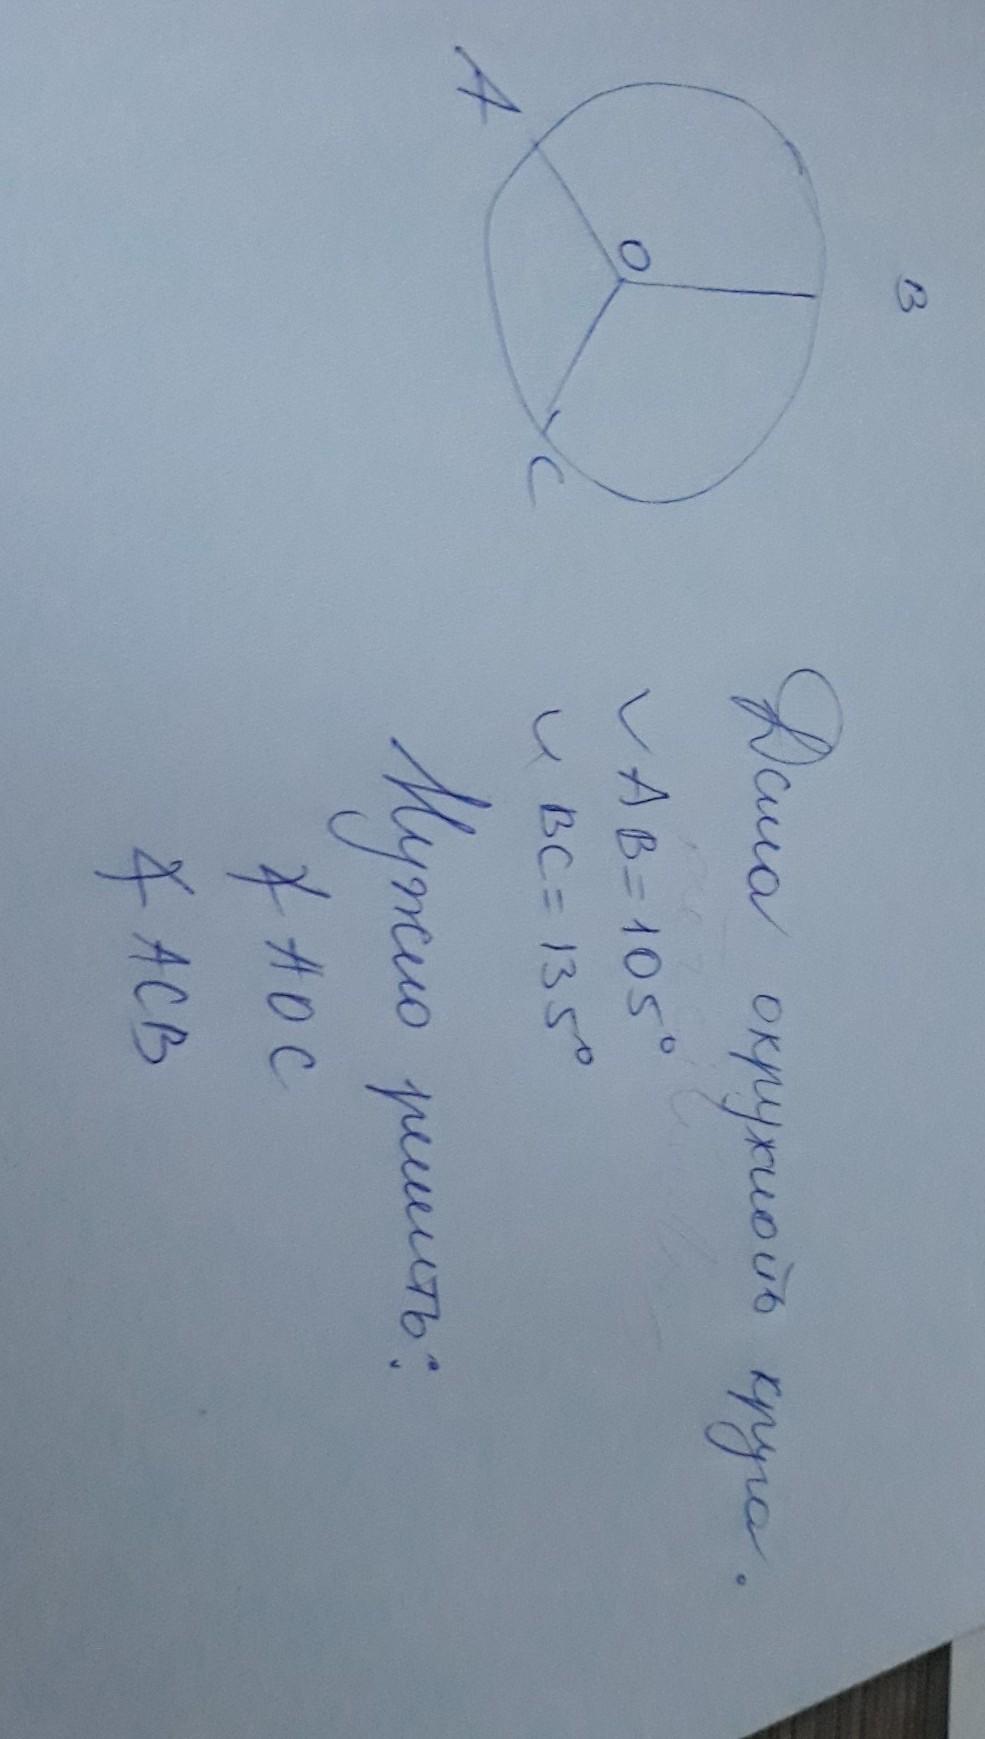 B
O
A
C
Дана окружность круга.
◡ AB = 105°
◡ BC = 135°
Нужно решить:
∡ AOC
∡ ACB